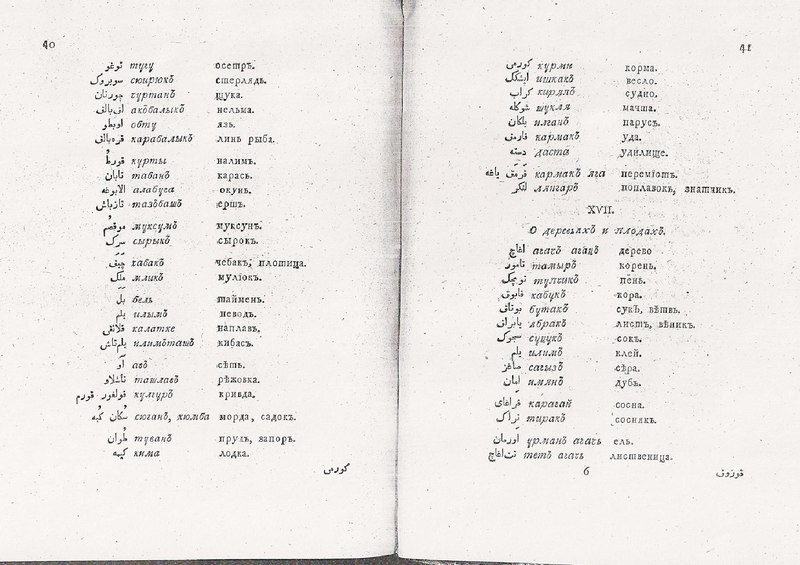 40
توغو тугу осетръ.
سويروك сюирюкъ стерлядь.
چورتان чуртанъ щука.
اق بالق акъбалыкъ нельма.
اوبطو обту язь.
قره بالق карабалыкъ линь рыба.
قورط курты налимъ.
تابان табанъ карась.
الابوغه алабуга окунь.
تازباش тазъбашъ ершъ.
موقصم муксумъ муксунъ.
سرك сырыкъ сырокъ.
чабакъ чебакъ, плотица.
ملك мликъ мулюкъ.
بل бель таймень.
يلم илымъ неводъ.
калатке наплавъ.
يلم تاش илимъташъ кибасъ.
آو авъ сѣть.
تاشلاو ташлавъ рѣжовка.
кулгуръ кривда.
сюганъ, хюмба морда, садокъ.
طوان туванъ прудъ, запоръ.
كيمه кима лодка.
كورمى
41
كورمى курми корма.
ايشكك ишкакъ весло.
كراب киряпъ судно.
شوكله шукля мачта.
يلكان илганъ парусъ.
قارمق кармакъ уда.
دسته даста удилище.
قرمق ياغه кармакъ яга перемiотъ.
لنكر лянгаръ поплавокъ, знатчикъ.
XVII.
О деревьяхъ и плодахъ.
اغاچ агачъ агацъ дерево
تامور тамыръ корень,
тупчикъ пень.
قابوق кабукъ кора.
بوتاق бутакъ сукъ, вѣтвь.
يابراق ябракъ листъ, вѣникъ.
سجوك суцукъ сокъ.
يلم илимъ клей.
ساغز сагызъ сѣра.
امان имянъ дубъ.
قراغاى карагай сосна.
تراك тиракъ соснякъ.
اورمان урманъ агачь ель.
تت اغاچ тетъ агачь лиственица.
6
قوزوق